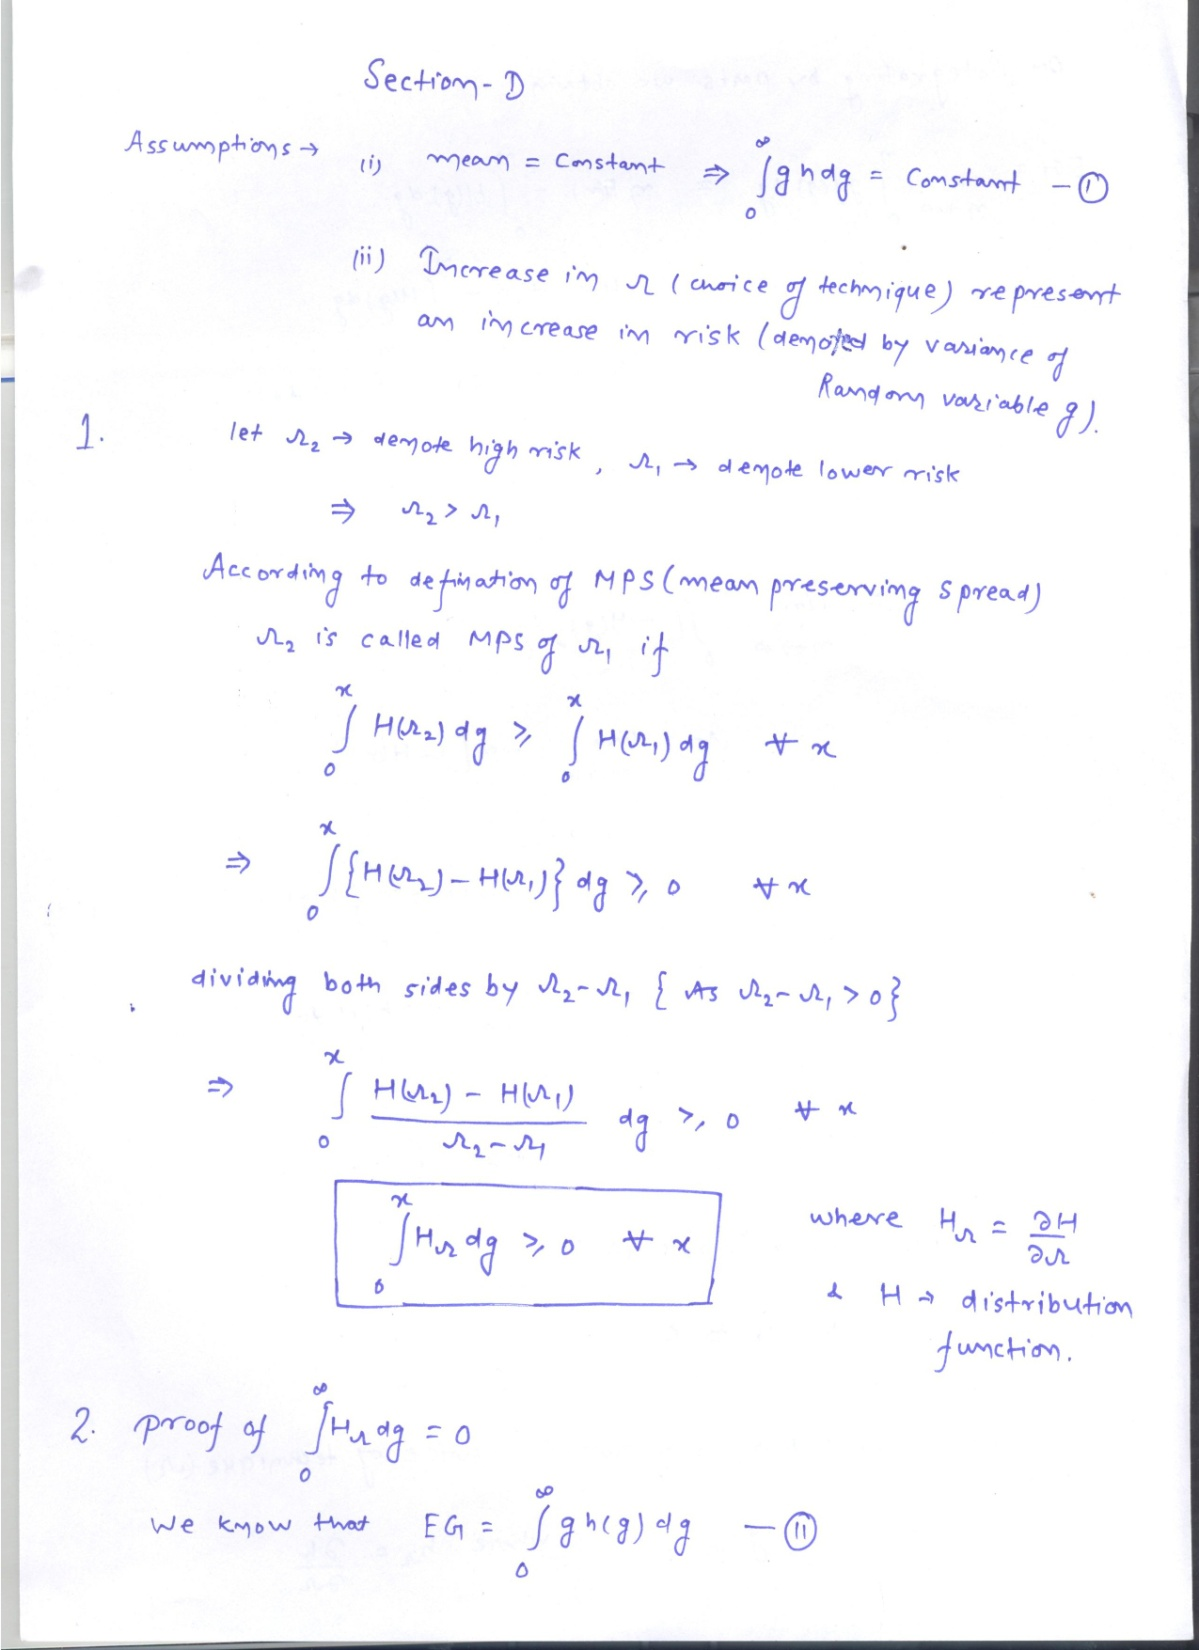 Section-D
Assumptions → (i) mean = Constant ⇒ ∫₀^∞ g h dg = Constant — ①
(ii) Increase in r (choice of technique) represent
an increase in risk (denoted by variance of
Random variable g).
1. let r₂ → denote high risk, r₁ → denote lower risk
⇒ r₂ > r₁
According to defination of MPS (mean preserving spread)
r₂ is called MPS of r₁ if
∫₀^x H(r₂) dg ≥ ∫₀^x H(r₁) dg ∀ x
⇒ ∫₀^x {H(r₂) – H(r₁)} dg ≥ 0 ∀ x
dividing both sides by r₂-r₁ { As r₂-r₁ > 0}
⇒ ∫₀^x (H(r₂) – H(r₁))/(r₂-r₁) dg ≥ 0 ∀ x
∫₀^x H_r dg ≥ 0 ∀ x where H_r = ∂H/∂r
& H → distribution
function.
2. proof of ∫₀^∞ H_r dg = 0
We know that EG = ∫₀^∞ g h(g) dg — ⑪